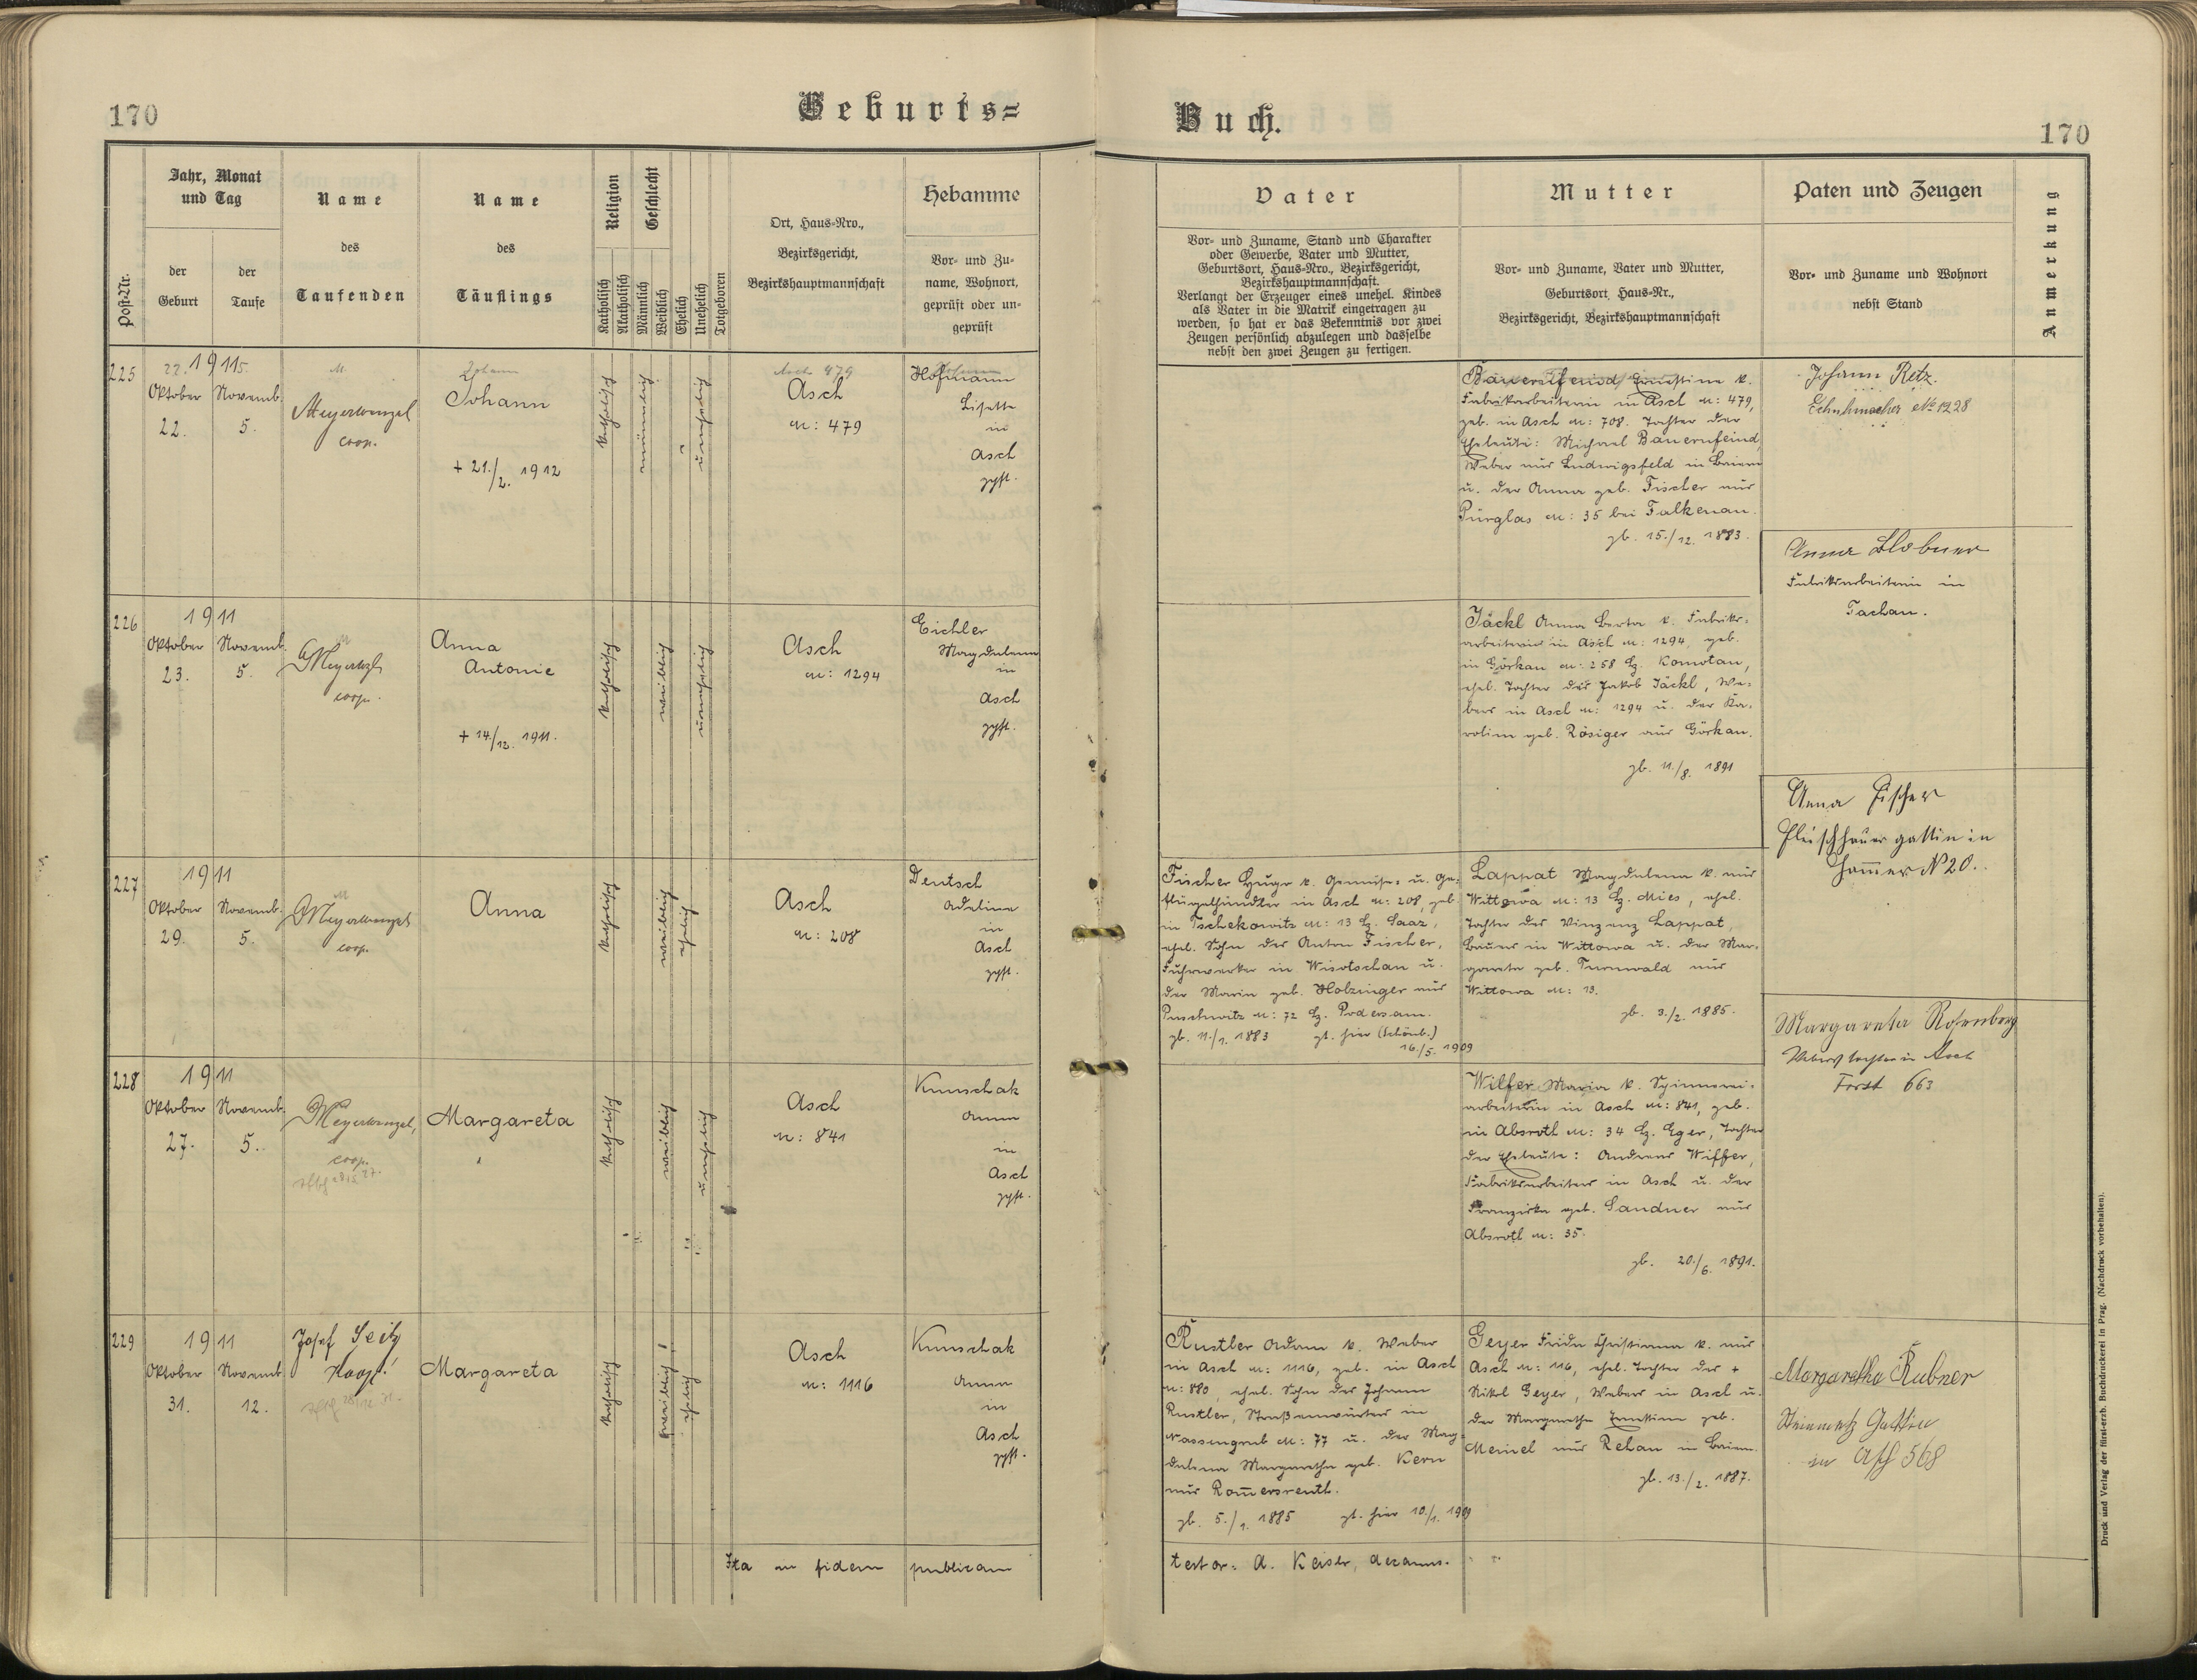 170
Geburts=
Buch.
170
Post-Nr.
Jahr, Monat
und Tag
der
Geburt
der
Taufe
Name
des
Taufenden
Name
des
Täuflings
Religion
Katholisch
Akatholisch
Geschlecht
Männlich
Weiblich
Ehelich
Unehelich
Totgeboren
Ort, Haus=Nro.,
Bezirksgericht,
Bezirkshauptmannschaft
Hebamme
Vor= und Zu=
name, Wohnort,
geprüft oder un=
geprüft
Vater
Vor= und Zuname, Stand und Charakter
oder Gewerbe, Vater und Mutter,
Geburtsort, Haus=Nro., Bezirksgericht,
Bezirkshauptmannschaft.
Verlangt der Erzeuger eines unehel. Kindes
als Vater in die Matrik eingetragen zu
werden, so hat er das Bekenntnis vor zwei
Zeugen persönlich abzulegen und dasselbe
nebst den zwei Zeugen zu fertigen.
Mutter
Vor= und Zuname, Vater und Mutter,
Geburtsort, Haus=Nr.,
Bezirksgericht, Bezirkshauptmannschaft
Paten und Zeugen
Vor= und Zuname und Wohnort
nebst Stand
Anmerkung
225
1911
Oktober Novemb.
22. 5.
Meyerwenzel
coop.
Johann
+ 21./2. 1912
katholisch
männlich
unehelich
Asch
N: 479
Hofmann
Lisette
in
Asch
gpft.
Bauernfeind Ernestine k.
Fabrikarbeiterin in Asch N: 479,
geb. in Asch N: 708. Tochter der
Eheleute: Michael Bauernfeind,
Weber aus Ludwigsfeld in Baiern
u. der Anna geb. Fischer aus
Pürglas N: 35 bei Falkenau.
gb. 15./12. 1883.
Johann Retz.
Schuhmacher No 1228
Anna
Fabriksarbeiterin in
Tachau.
226
1911
Oktober Novemb.
23. 5.
Meyerwzl
coop.
Anna
Antonie
+ 14./12. 1911.
katholisch
weiblich
unehelich
Asch
N: 1294
Eichler
Magdalena
in
Asch
gpft.
Jäckl Anna Berta k. Fabriks=
arbeiterin in Asch N: 1294, geb.
in Görkau N: 258 Bz. Komotau,
ehel. Tochter des Jakob Jäckl, We=
bers in Asch N: 1294 u. der Ka=
rolina geb. Rösiger aus Görkau.
gb. 11./8. 1891
Anna Fischer
Fleischhauer gattin in
N 20.
227
1911
Oktober Novemb.
29. 5.
Meyerwenzel
coop.
Anna
katholisch
weiblich
ehelich
Asch
N: 208
Deutsch
Adelina
in
Asch
gpft.
Fischer Hugo k. Gemüse= u. Ge=
flügelhändler in Asch N: 208, geb.
in Tschekowitz N: 13 Bz. Saaz,
ehel. Sohn des Anton Fischer,
Fuhrwerker in Wisotschan u.
der Maria geb. Holzinger aus
Puschwitz N: 72 Bz. Podersam.
gb. 11./1. 1883 gt. hier (Schönb.)
16./5. 1909
Lappat Magdalena k. aus
Wittowa N: 13 Bz. Mies, ehel.
Tochter des Vinzenz Lappat,
Bauers in Wittowa u. der Mar=
gareta geb. Turnwald aus
Wittowa N: 13.
gb. 3./2. 1885.
Margareta Rosenberg
Webers tochter in Asch
Forst 663
228
1911
Oktober Novemb.
27. 5.
Meyerwenzel,
coop.
Margareta
katholisch
weiblich
unehelich
Asch
N: 841
Kunschak
Anna
in
Asch
gpft.
Wilfer Maria k. Spinnerei=
arbeiterin in Asch N: 841, geb.
in Absroth N: 34 Bz. Eger, Tochter
der Eheleute: Andreas Wilfer,
Fabriksarbeiters in Asch u. der
Franziska geb. Sandner aus
Absroth N: 35.
gb. 20./6. 1891.
229
1911
Oktober Novemb.
31. 12.
Josef Seitz
Koop!
Margareta
katholisch
weiblich
ehelich
Asch
N: 1116
Kunschak
Anna
in
Asch
gpft.
Rustler Adam k. Weber
in Asch N: 1116, geb. in Asch
N: 880, ehel. Sohn des Johann
Rustler, Straßenwärters in
Nassengrub N: 77 u. der Mag=
dalena Margaretha geb. Kern
aus Rom̅ersreuth.
gb. 5./1. 1885 gt. hier 10./1. 1909
Geyer Frida Christiana k. aus
Asch N: 116, ehel. Tochter des +
Nikol Geyer, Webers in Asch u.
der Margaretha Ernestine geb.
Meinel aus Rehau in Baiern.
gb. 13./2. 1887.
Margaretha Rubner
Steinmetz Gattin
in Asch 568
Ita in fidem publicam
testor: A. Keisler, decanus.
Druck und Verlag der fürst-erzb. Buchdruckerei in Prag. (Nachdruck vorbehalten).